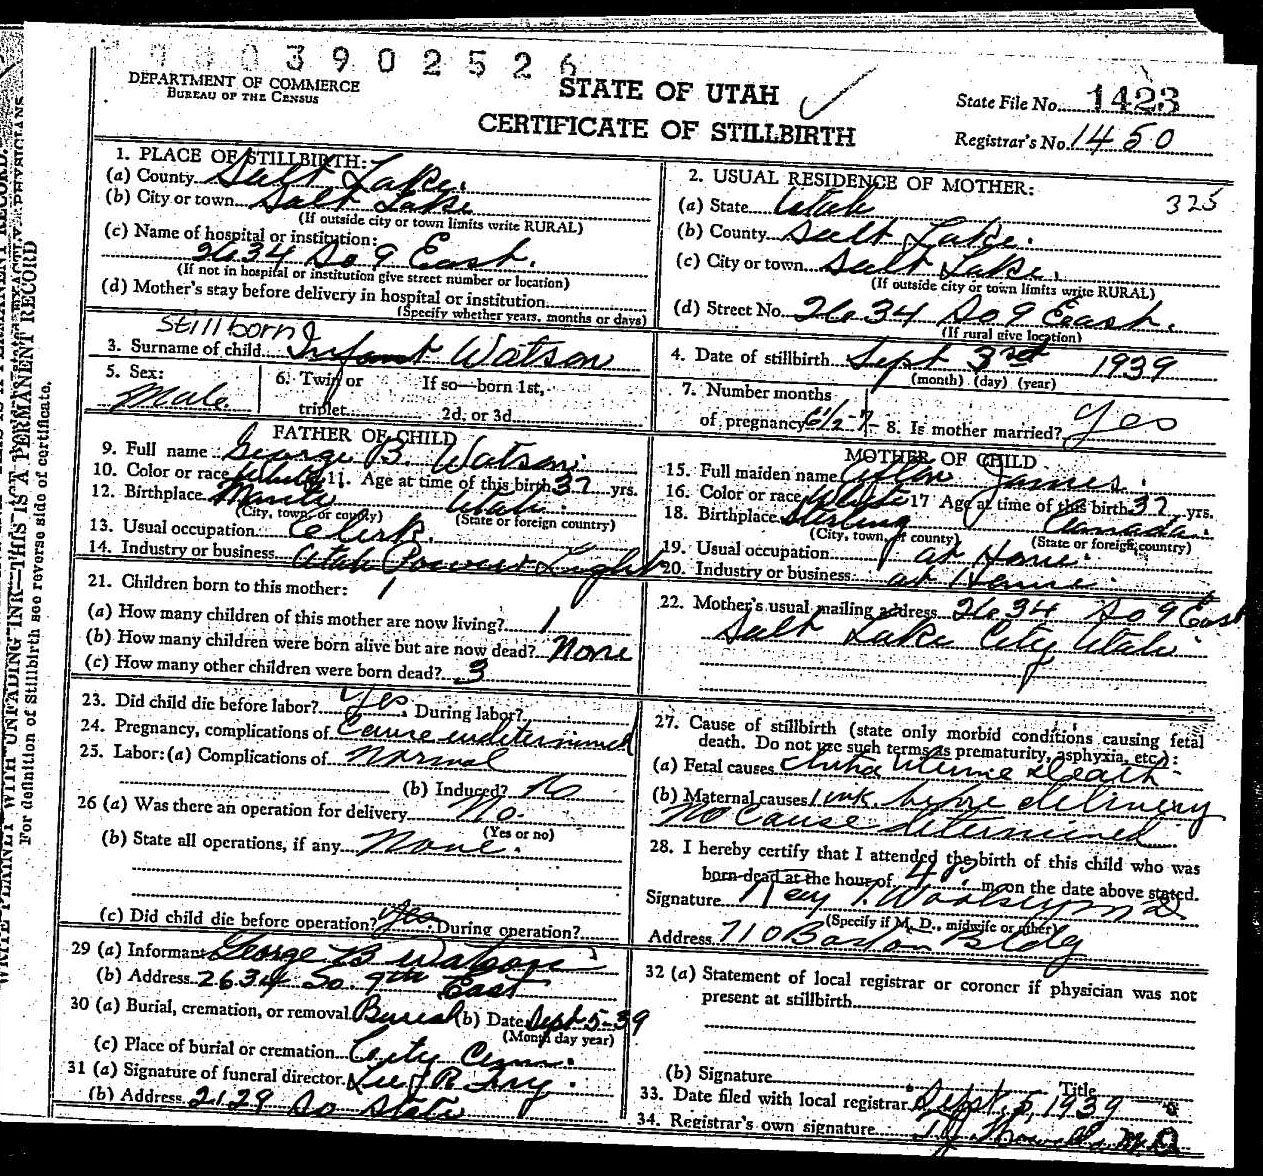 3 9 0 2 5 2 6
DEPARTMENT OF COMMERCE
BUREAU OF THE CENSUS
STATE OF UTAH
CERTIFICATE OF STILLBIRTH
State File No. 1423
Registrar's No. 1450
1. PLACE OF STILLBIRTH:
(a) County Salt Lake.
(b) City or town Salt Lake
(If outside city or town limits write RURAL)
(c) Name of hospital or institution:
2634 So 9 East.
(If not in hospital or institution give street number or location)
(d) Mother's stay before delivery in hospital or institution
(Specify whether years, months or days)
2. USUAL RESIDENCE OF MOTHER:
325
(a) State Utah
(b) County Salt Lake.
(c) City or town Salt Lake.
(If outside city or town limits write RURAL)
(d) Street No. 2634 So 9 East.
(If rural give location)
Stillborn
3. Surname of child Infant Watson
4. Date of stillbirth Sept 3rd 1939
(month) (day) (year)
5. Sex: Male
6. Twin or triplet If so—born 1st, 2d, or 3d
7. Number months of pregnancy 6 1/2-7-
8. Is mother married? Yes
FATHER OF CHILD
9. Full name George B. Watson.
10. Color or race White 11. Age at time of this birth 37 yrs.
12. Birthplace Manti Utah.
(City, town, or county) (State or foreign country)
13. Usual occupation Clerk.
14. Industry or business Utah Power Light
MOTHER OF CHILD
15. Full maiden name Afton James.
16. Color or race White 17 Age at time of this birth 37 yrs.
18. Birthplace Sterling Canada.
(City, town, or county) (State or foreign country)
19. Usual occupation at Home.
20. Industry or business at Home.
21. Children born to this mother: 1
(a) How many children of this mother are now living? 1
(b) How many children were born alive but are now dead? None
(c) How many other children were born dead? 3
22. Mother's usual mailing address 2634 So 9 East
Salt Lake City Utah.
23. Did child die before labor? Yes. During labor?
24. Pregnancy, complications of Cause undetermined
25. Labor: (a) Complications of Normal
(b) Induced? No
26 (a) Was there an operation for delivery No.
(Yes or no)
(b) State all operations, if any None.
(c) Did child die before operation? Yes. During operation?
27. Cause of stillbirth (state only morbid conditions causing fetal
death. Do not use such terms as prematurity, asphyxia, etc.):
(a) Fetal causes Intra Uterine Death-
(b) Maternal causes 1 wk. before delivery
No Cause determined
28. I hereby certify that I attended the birth of this child who was
born dead at the hour of 4 m on the date above stated.
Signature Ray T. Woolsey M D
(Specify if M. D., midwife or other)
Address 710 Boston Bldg
29 (a) Informant George B Watson
(b) Address 2634 So. 9th East
30 (a) Burial, cremation, or removal Burial (b) Date Sept-5-39
(Month day year)
(c) Place of burial or cremation City Cem.
31 (a) Signature of funeral director
(b) Address 2129 So State
32 (a) Statement of local registrar or coroner if physician was not
present at stillbirth
(b) Signature Title
33. Date filed with local registrar Sept. 5, 1939
34. Registrar's own signature M.D.
WRITE PLAINLY WITH UNFADING INK—THIS IS A PERMANENT RECORD
For definition of Stillbirth see reverse side of certificate.